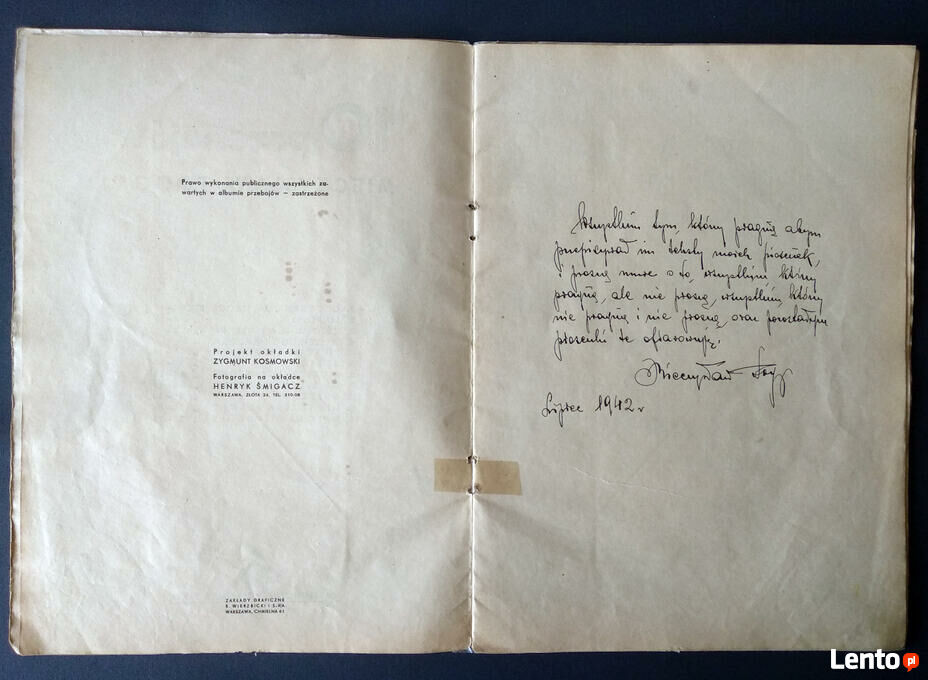 Prawo wykonania publicznego wszystkich za-
wartych w albumie przebojów — zastrzeżone
Projekt okładki
ZYGMUNT KOSMOWSKI
Fotografia na okładce
HENRYK ŚMIGACZ
WARSZAWA, ZŁOTA 24, TEL. 310-08
ZAKŁADY GRAFICZNE
B. WIERZBICKI I S-KA
WARSZAWA, CHMIELNA 61
Wszystkim tym, którzy pragną abym
przepisywał im teksty moich piosenek,
i proszą mnie o to, wszystkim którzy
pragną, ale nie proszą, wszystkim, którzy
nie pragną i nie proszą oraz pozostałym
piosenki te ofiarowuję.
Mieczysław Fogg
Lipiec 1942 r
Lento.pl